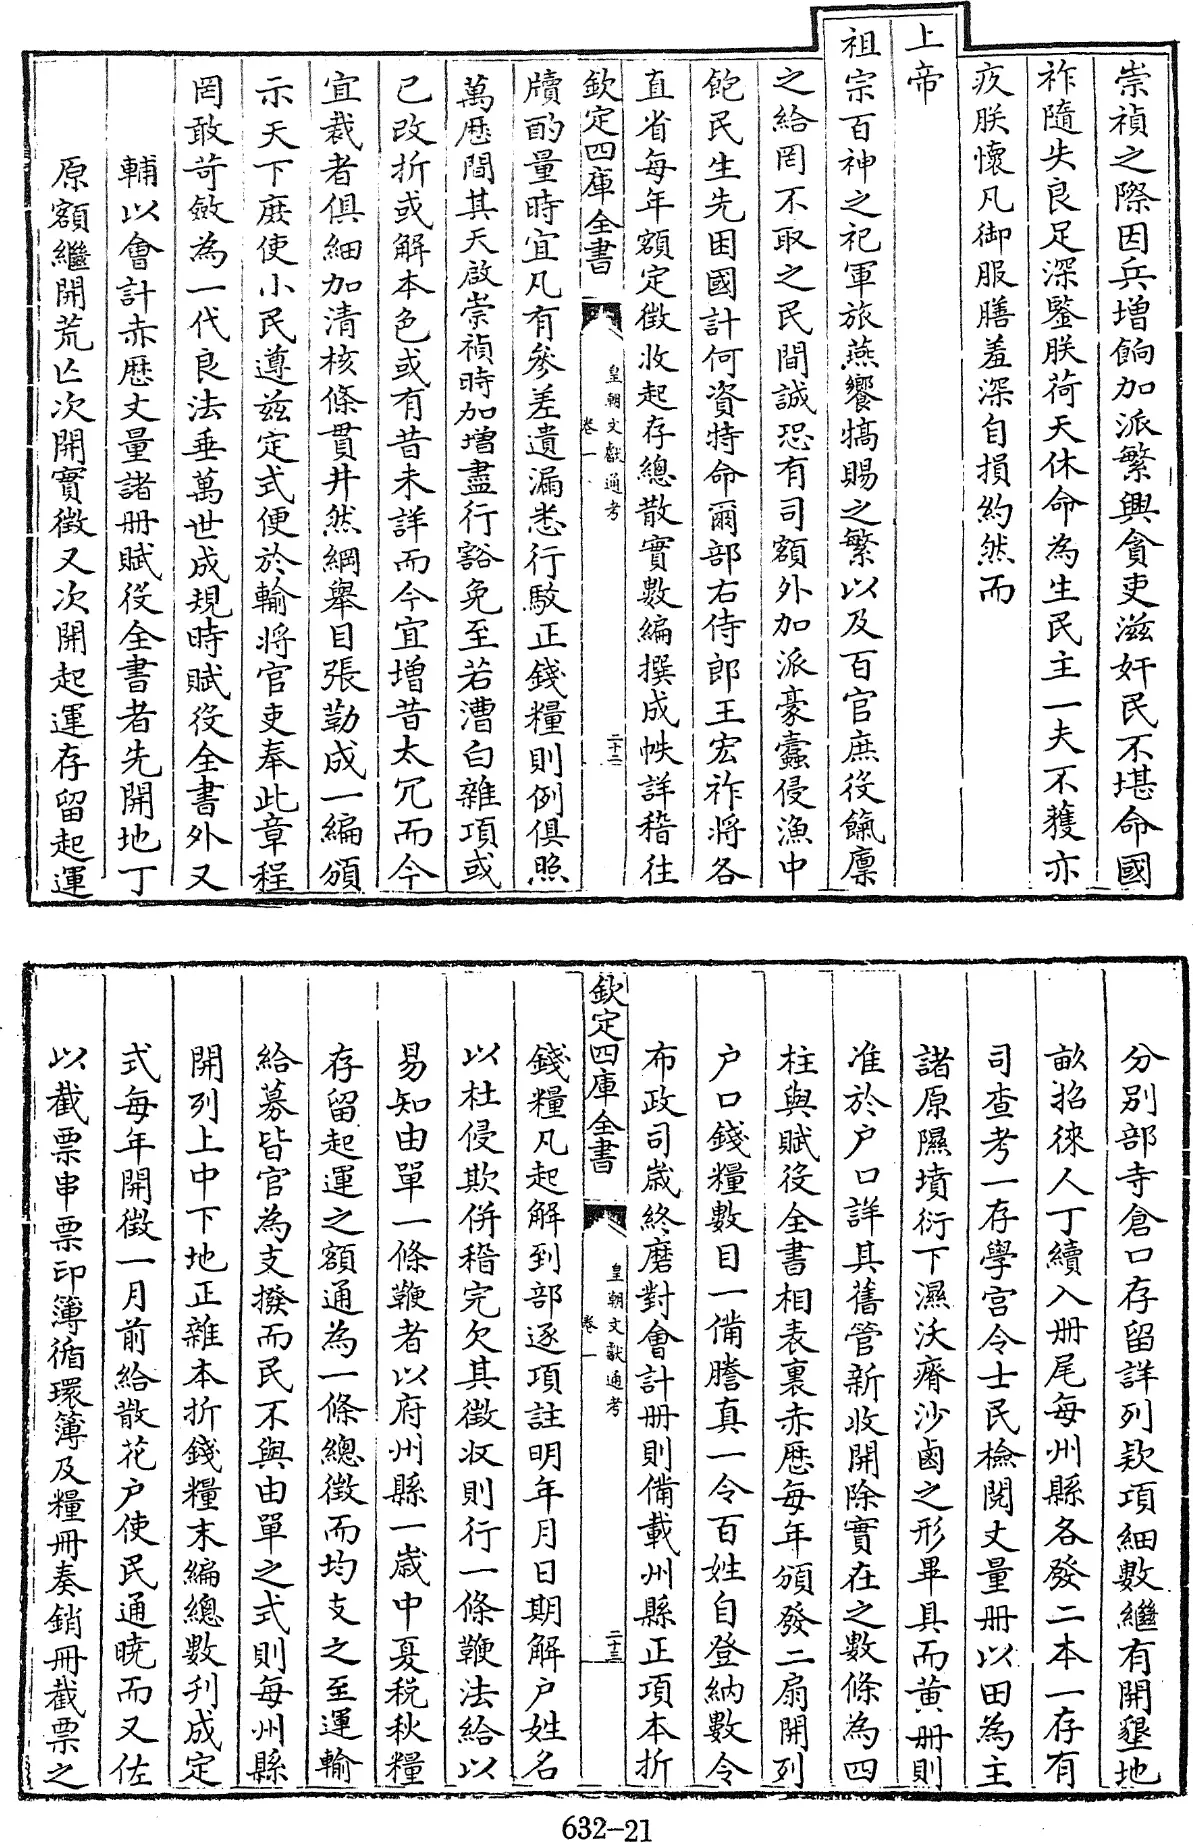 崇禎之際因兵增餉加派繁興貪吏滋奸民不堪命國
祚隨失良足深鍳朕荷天休命為生民主一夫不獲亦
疚朕懷凡御服膳羞深自損約然而
上帝
祖宗百神之祀軍旅燕饗犒賜之繁以及百官庶役餼廩
之給罔不取之民間誠恐有司額外加派豪蠧侵漁中
飽民生先困國計何資特命爾部右侍郎王宏祚將各
直省每年額定徵收起存總散實數編撰成帙詳稽往
欽定四庫全書
皇朝文獻通考
卷一
二十二
牘酌量時宜凡有參差遺漏悉行駮正錢糧則例俱照
萬歴間其天啟崇禎時加增盡行豁免至若漕白雜項或
已改折或解本色或有昔未詳而今宜增昔太冗而今
宜裁者俱細加清核條貫井然綱舉目張勒成一編頒
示天下庶使小民遵兹定式便於輸將官吏奉此章程
罔敢苛斂為一代良法垂萬世成規時賦役全書外又
輔以會計赤歴丈量諸册賦役全書者先開地丁
原額繼開荒亾次開實徵又次開起運存留起運
分別部寺倉口存留詳列欵項細數繼有開墾地
畝招徠人丁續入册尾每州縣各發二本一存有
司查考一存學宫令士民檢閲丈量册以田為主
諸原隰墳衍下濕沃瘠沙鹵之形畢具而黄册則
准於户口詳其舊管新收開除實在之數條為四
柱與賦役全書相表裏赤歴每年頒發二扇開列
户口錢糧數目一備謄真一令百姓自登納數令
布政司嵗終磨對會計册則備載州縣正項本折
欽定四庫全書
皇朝文獻通考
卷一
二十三
錢糧凡起解到部逐項註明年月日期解户姓名
以杜侵欺併稽完欠其徵收則行一條鞭法給以
易知由單一條鞭者以府州縣一嵗中夏税秋糧
存留起運之額通為一條總徵而均支之至運輸
給募皆官為支撥而民不與由單之式則每州縣
開列上中下地正雜本折錢糧末編總數刋成定
式每年開徵一月前給散花户使民通曉而又佐
以截票串票印簿循環簿及糧册奏銷册截票之
632-21